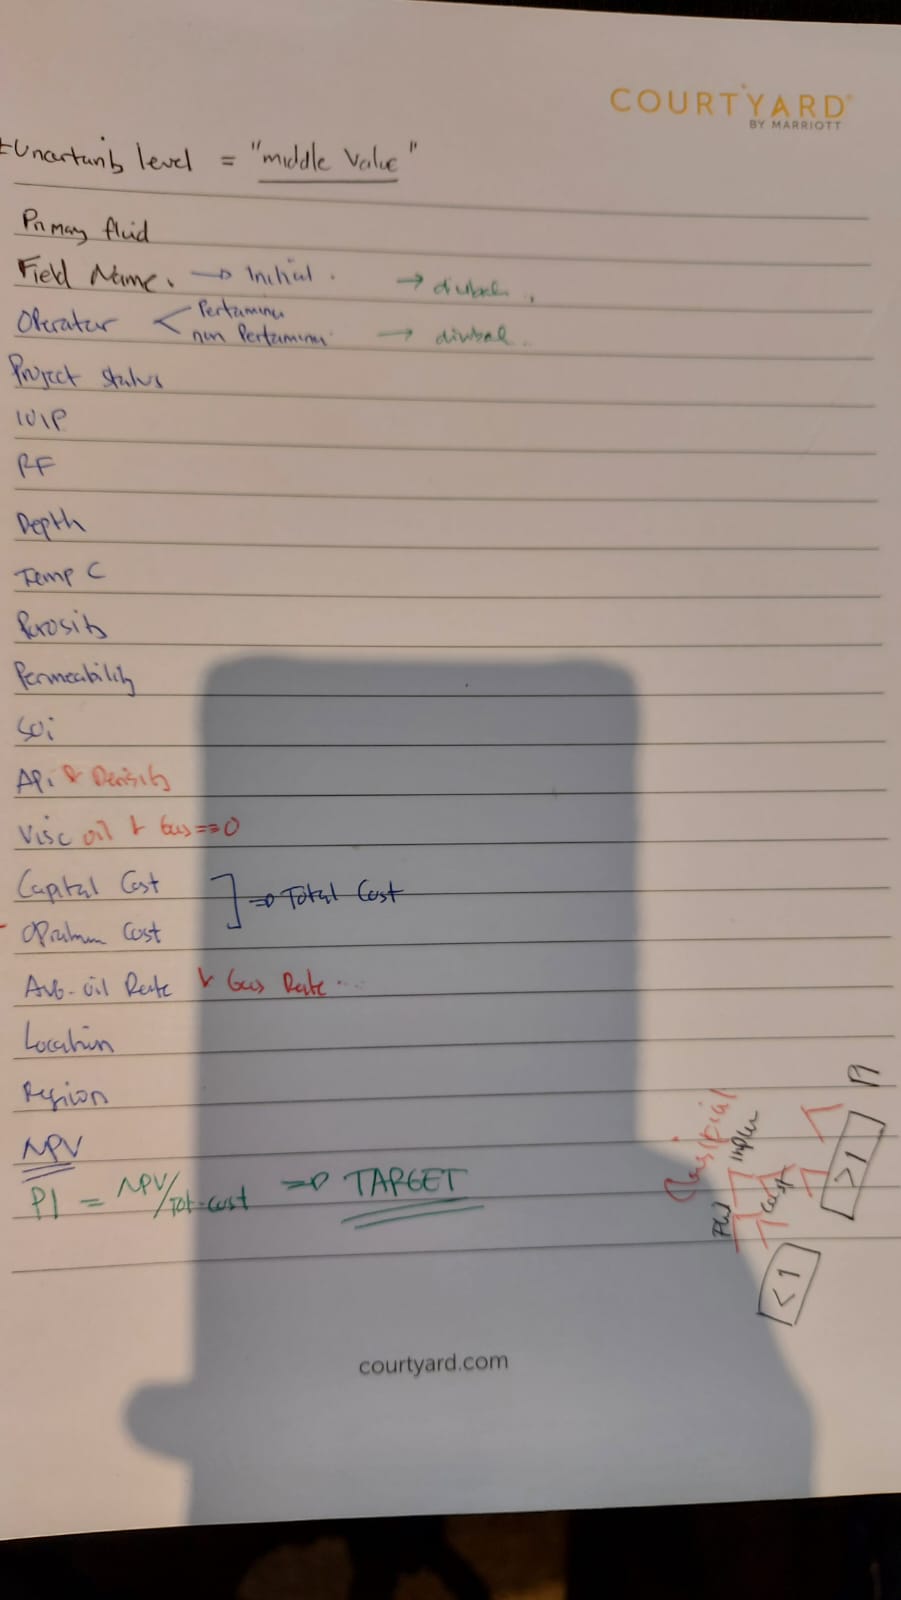 COURTYARD
BY MARRIOTT
level = "middle Value"
Primary fluid
Field Name. → Initial. →
Operator < Pertamina
non Pertamina →
Project status
IOIP
RF
Depth
Temp C
Porosity
Permeability
Soi
Api & Density
Visc oil & Gas ==0
Capital Cost
] => Total Cost
Cost
Avg. oil Rate & Gas Rate ...
Location
Region
NPV
PI = NPV/Tot.cost => TARGET
PI
>1
<1
courtyard.com